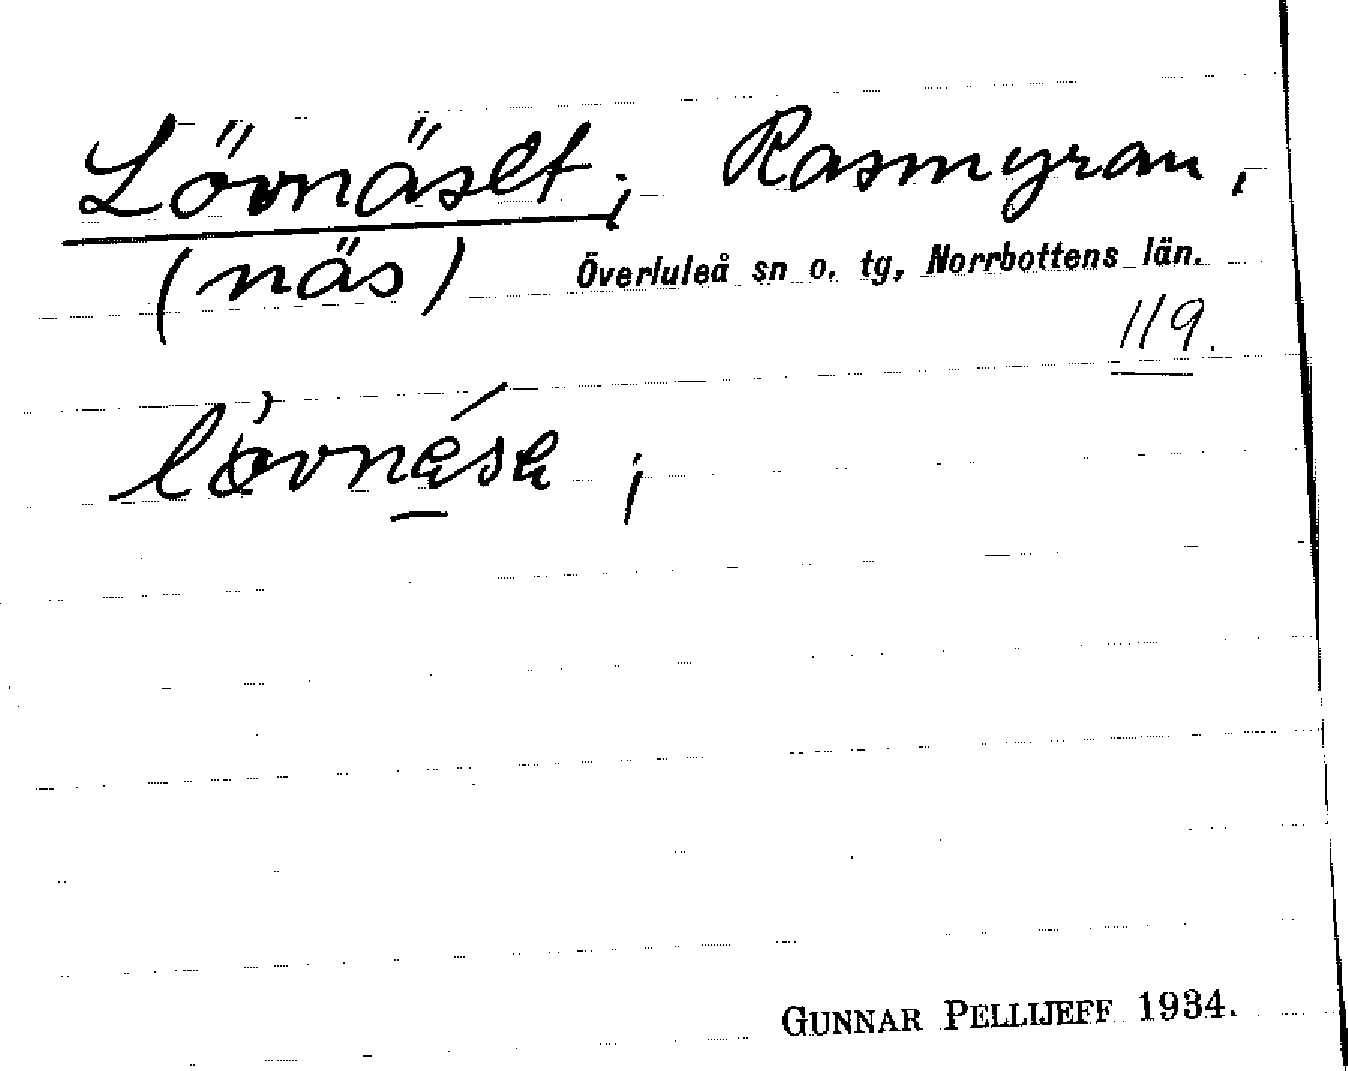 Lövnäset; Rasmyran,
(näs) Överluleå sn o. tg, Norrbottens län.
119.
lövnäsa ;
GUNNAR PELLIJEFF 1934.